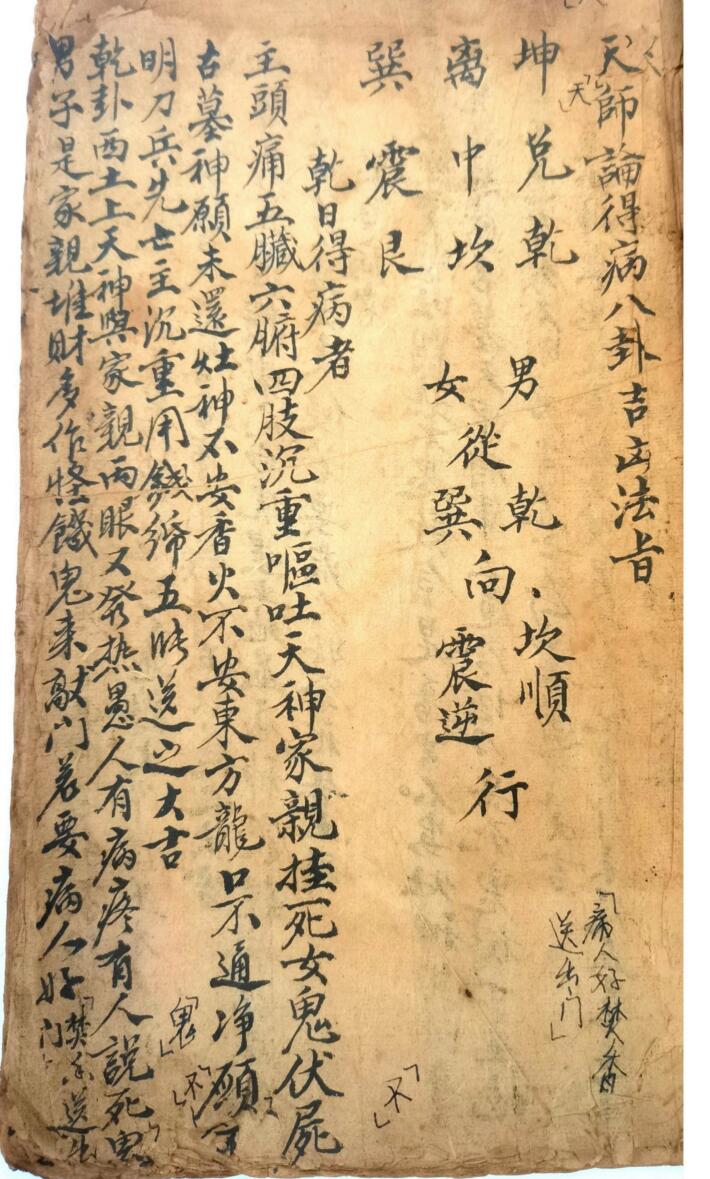 天師論得病八卦吉凶法旨
「天」
坤兌乾
離中坎
巽震艮
男從乾向坎順行
女從巽向震逆行
「病人好焚香
送出门」
乾日得病者
主頭痛五臟六腑四肢沉重嘔吐天神家親拄死女鬼伏屍
「不」
古墓神願未還灶神不安香火不安東方龍口不通净願
「不」
明刀兵先世主沉重用錢五送之大吉
「鬼」
乾卦西土上天神與家親兩眼又發热愚人有病疼有人說死鬼
男子是家親堆財多作怪饑鬼来敲门若要病人好「焚香送出门」